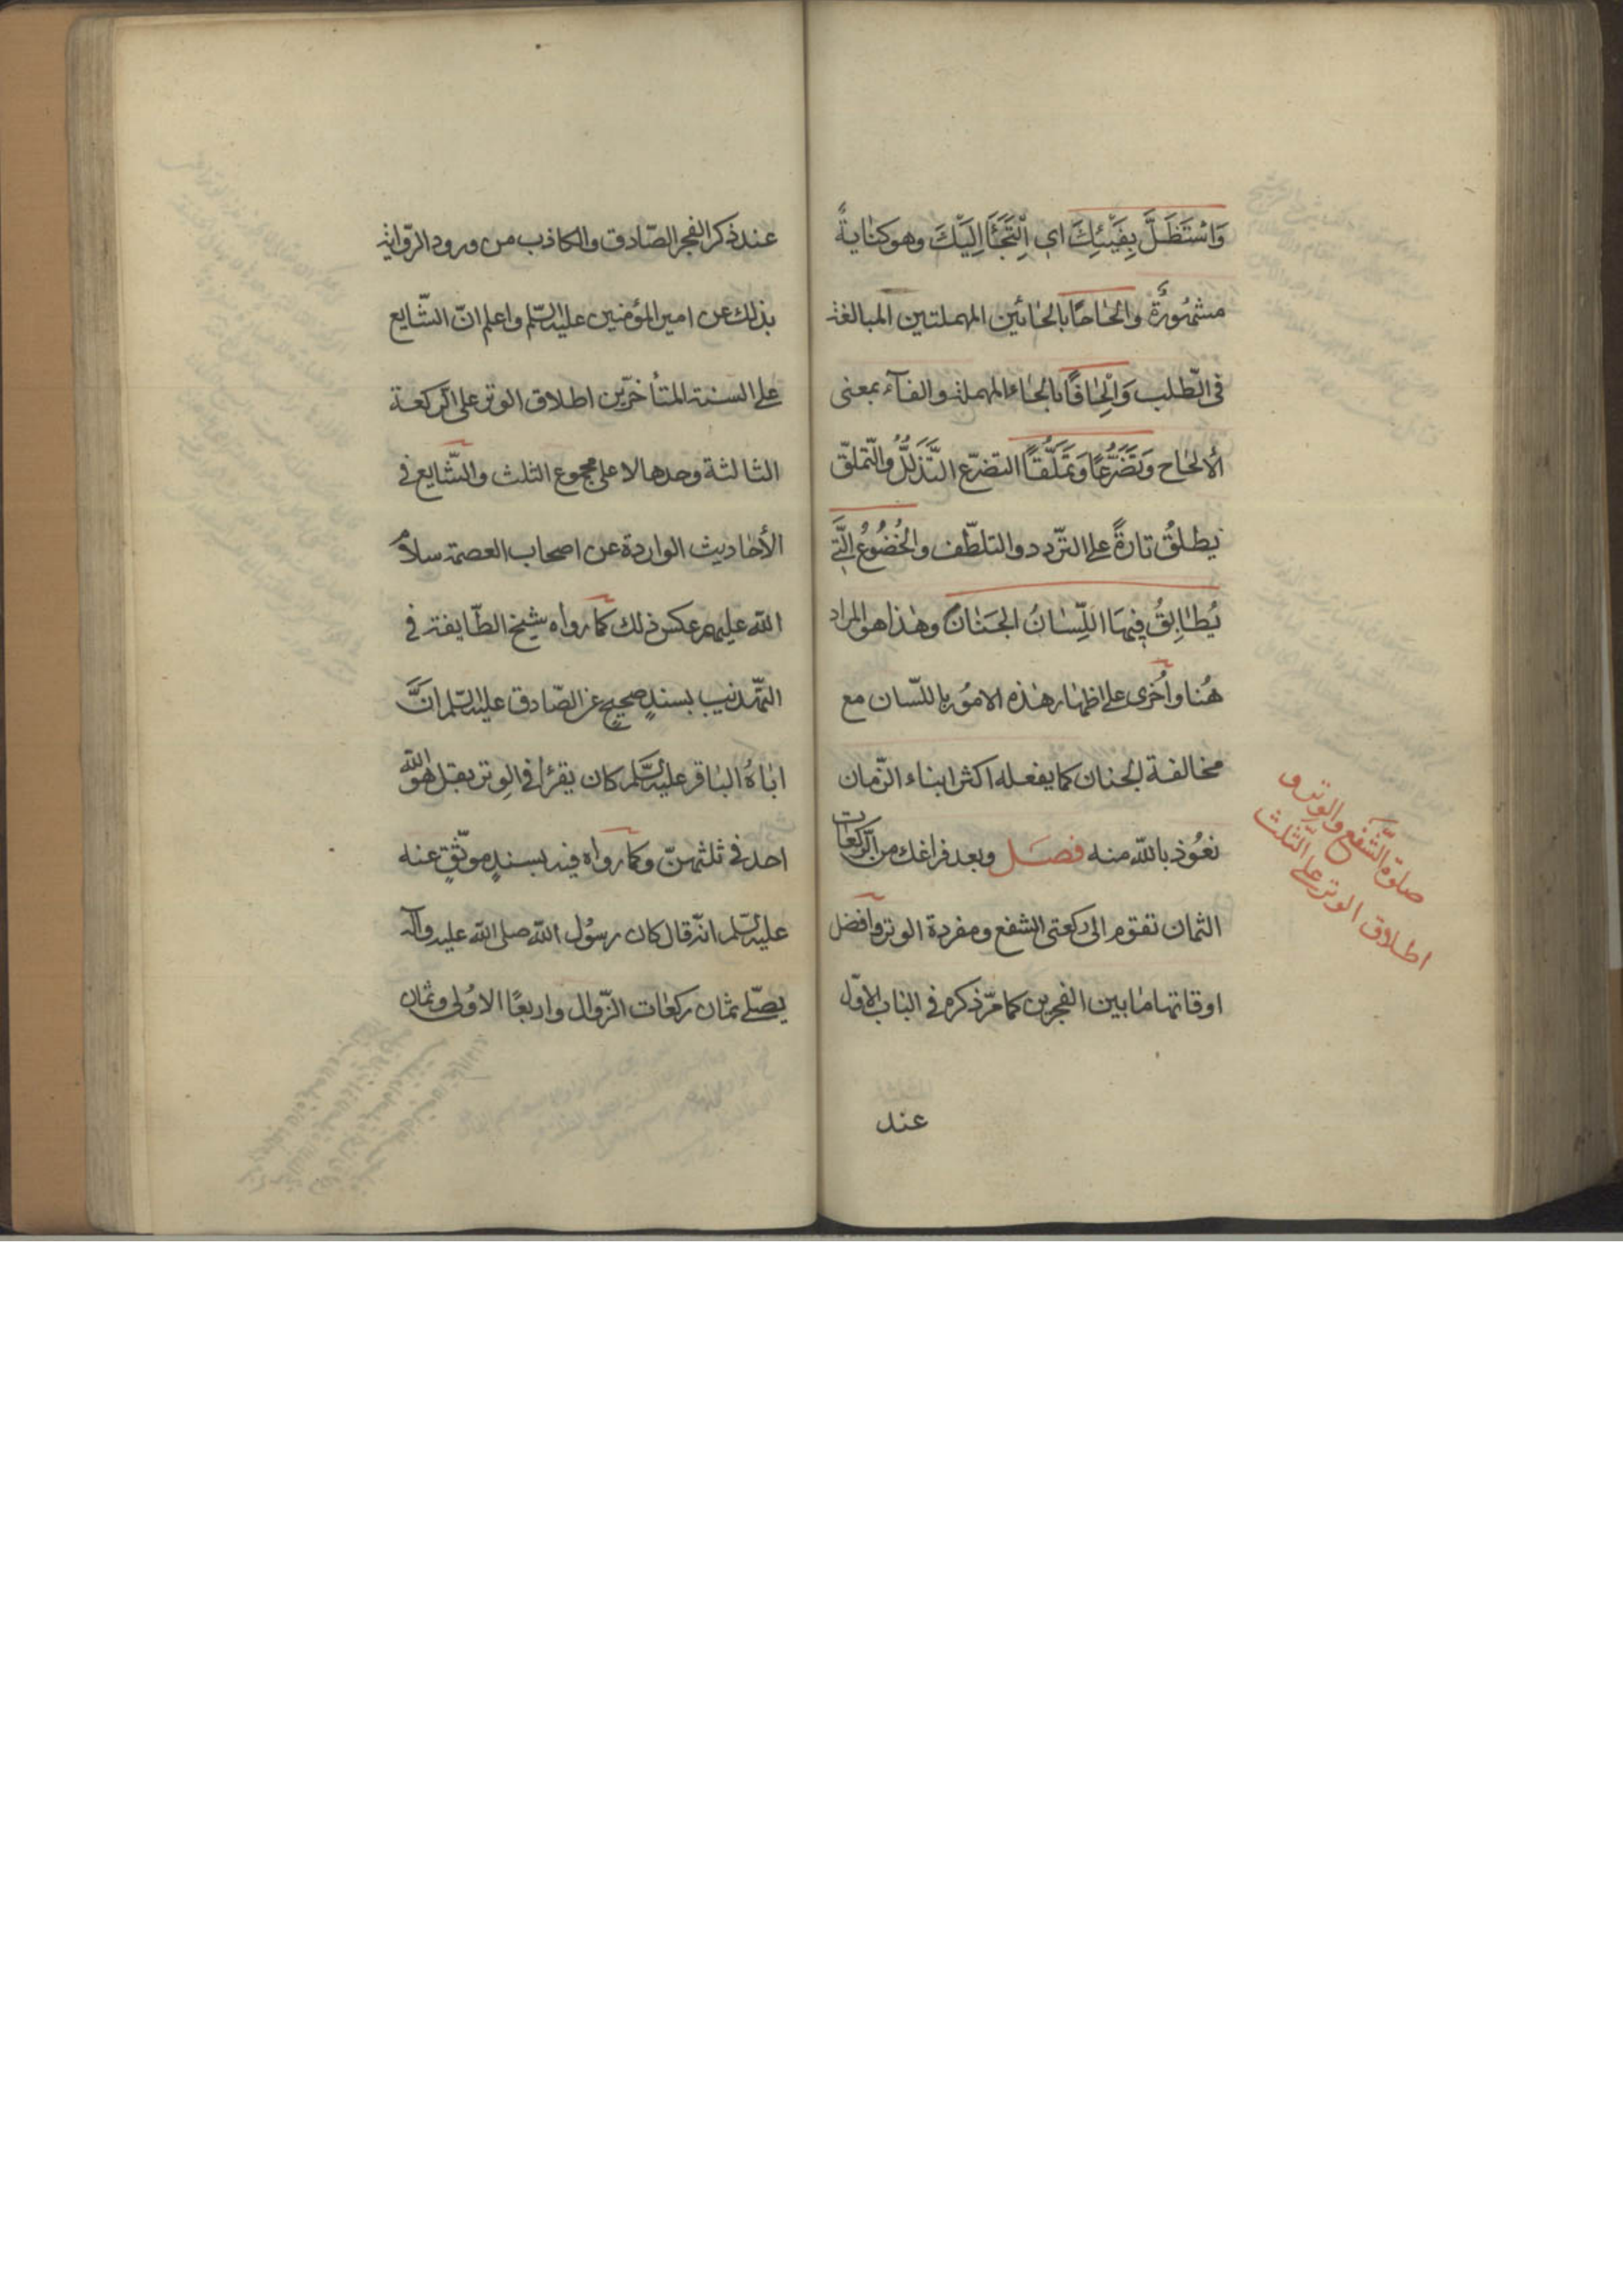 وَاسْتَظَلَّ بِفَيْئِكَ اي اِلْتَجَأَ اِلَيْكَ وهو كنايةٌ
مشهُورَةٌ والحاحًا بالحائين المهملتين المبالغة
فى الطّلب وَاِلْحٰافًا بالحاء المهملة والفآء بمعنى
الألحاح وَتَضَرُّعًا وَتَمَلُّقًا التضرّع التَّذَلُّلُ والتّملّق
يطلقُ تارةً على التّردد والتلطّف والخُضُوُعُ الَّتى
يُطٰابِقُ فِيهَا اللِّسٰانُ الجَنٰانَ وهٰذا هو المراد
هُنا واُخرى على اظهار هٰذه الامُور باللّسان مع
مخالفة الجنان كما يفعله اكثر ابناء الزّمان
نعُوذ بالله منه فصَل وبعد فراغك من الرّكعات
الثمان تقوم الى ركعتى الشفع ومفردة الوتر وافضل
اوقاتها مٰا بين الفجرين كما مرّ ذكره فى البٰاب الاوّل
عند
صلوة الشَّفع والوتر و
اطلاق الوتر على الثّلث
عند ذكر الفجر الصّادق والكاذب من ورود الرّواية
بذلك عن امير المؤمنين عليه السّلم واعلم انّ الشّايع
على السنة المتأخرّين اطلاق الوتر على الرّكعة
الثالثة وحدها لا على مجموع الثلث والشّايع فى
الأحٰاديث الواردة عن اصحاب العصمة سلامُ
الله عليهم عكس ذلك كما رواه شيخ الطّايفة فى
التّهذيب بسندٍ صحيحٍ عن الصّادق عليه السّلم انَّ
ابٰاهُ البٰاقر عليه السّلم كان يقرأ فى الوتر بقل هو الله
احد فى ثلثهنّ وكما رواه فيه بسندٍ موثّقٍ عنه
عليه السّلم انّه قال كان رسُول الله صلى الله عليه وآله
يصلّى ثمان ركعٰات الزّوال واربعًا الاوُلى وثمان